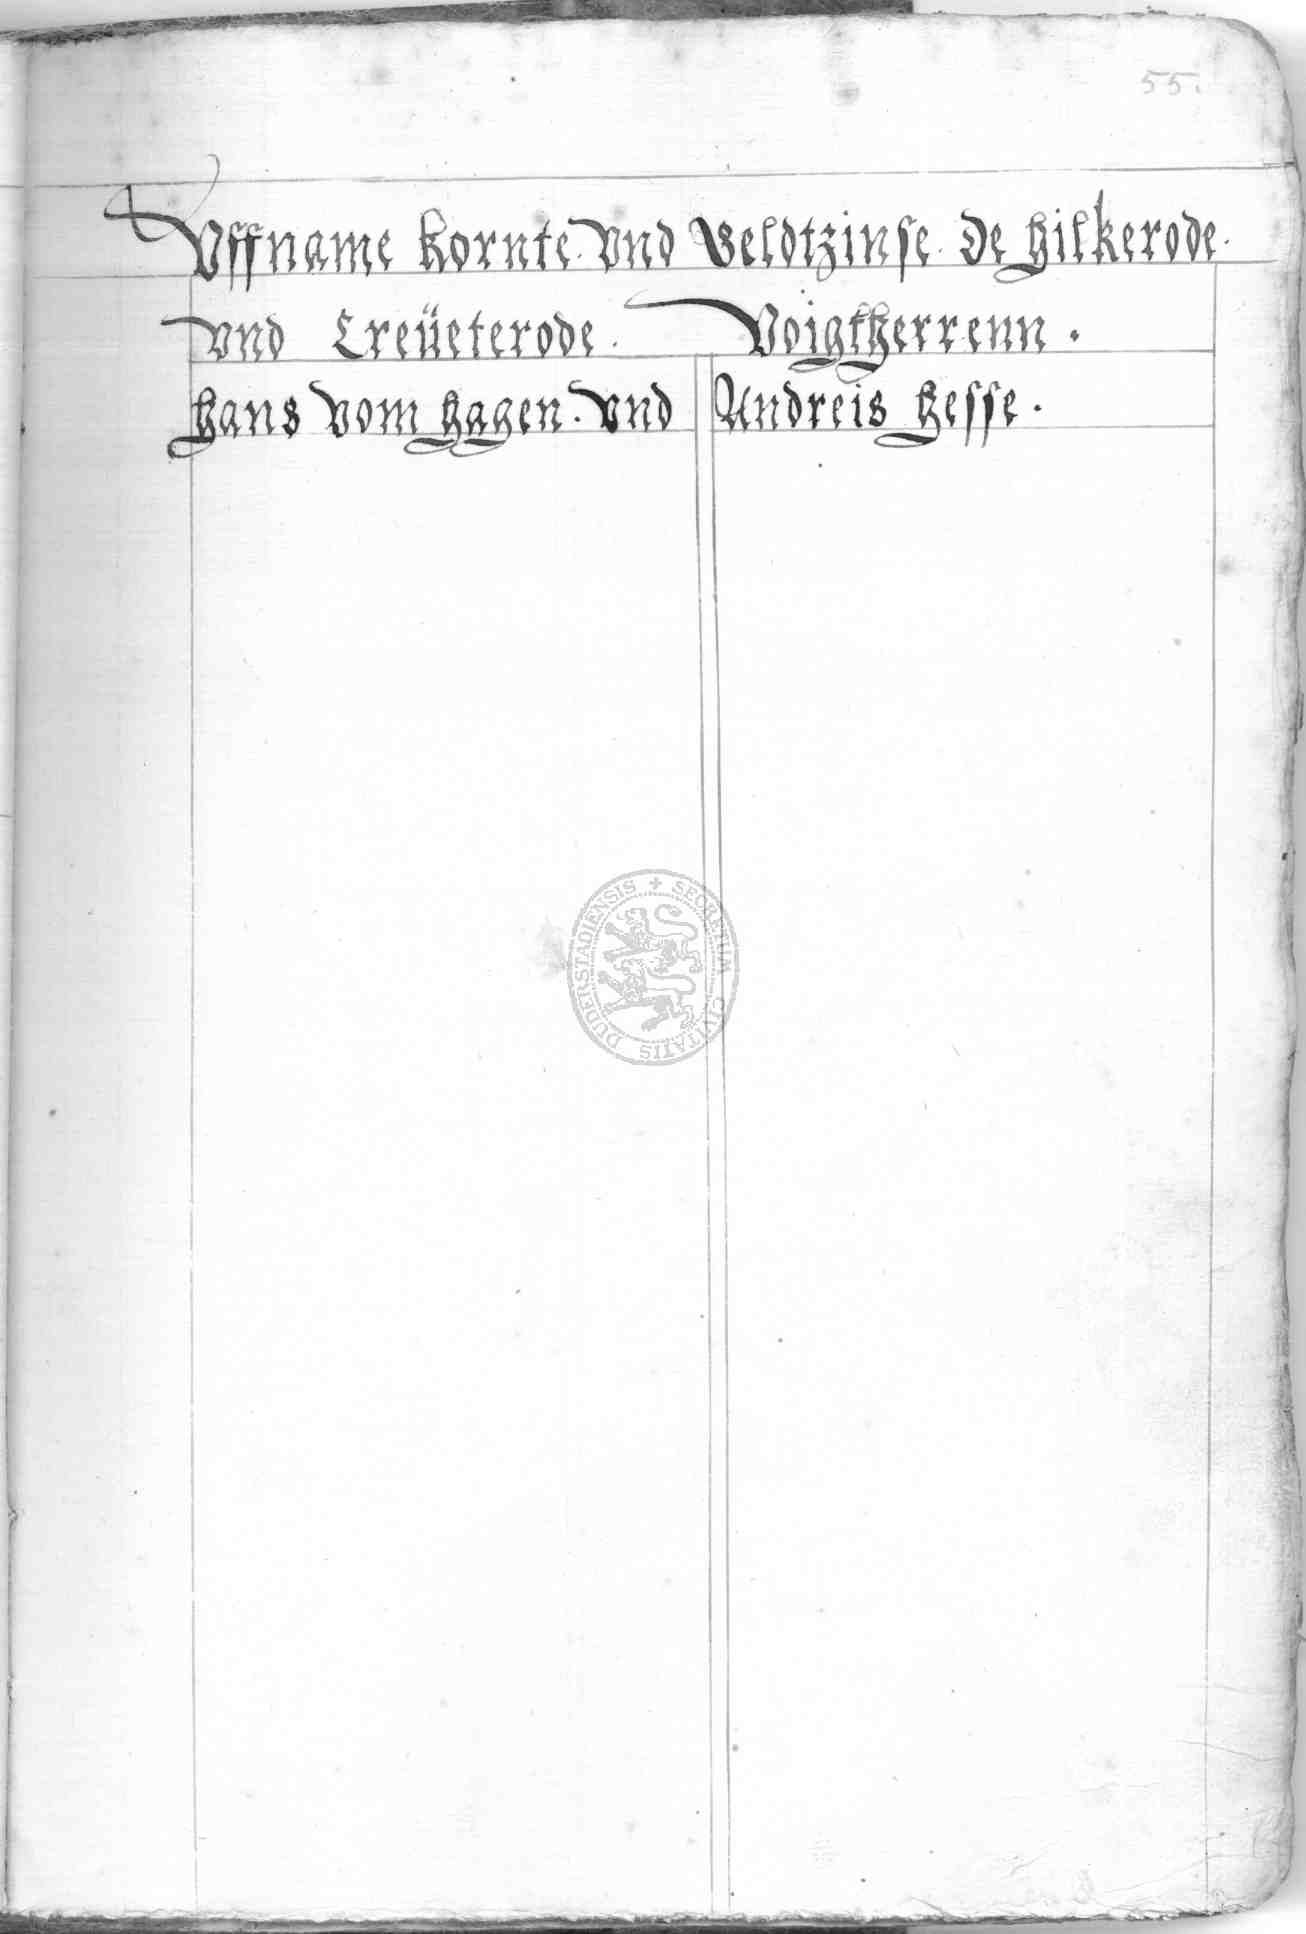 55.
Uffname Kornte. vnd Veldtzinse. De Hilkerode.
vnd Creüeterode. Voigtherrenn.
Hans vom Hagen. vnd Andreis Hesse.
SECRETUM CIVITATIS DUDERSTADIENSIS